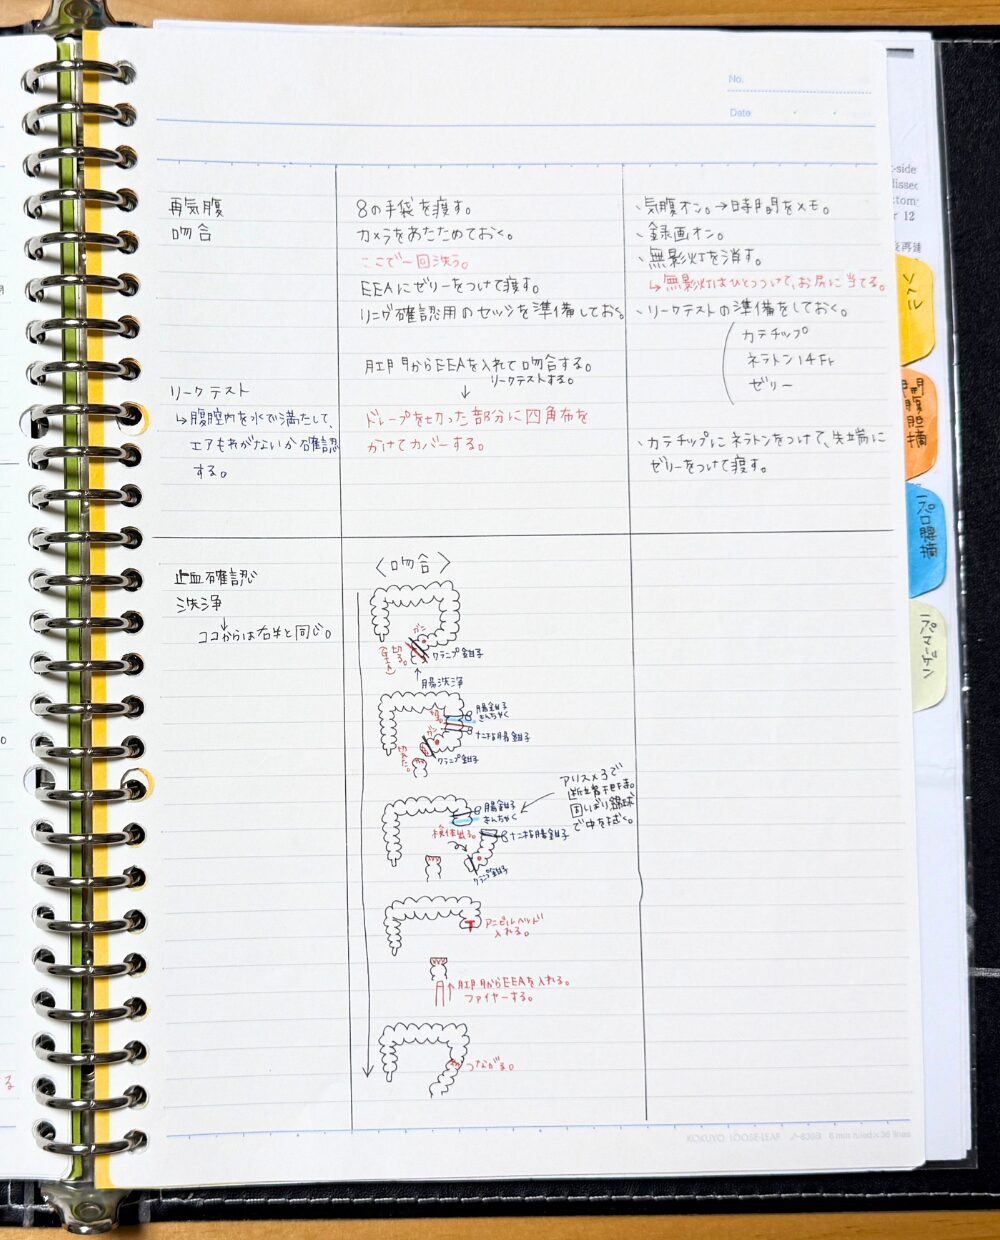 No.
Date
再気腹
吻合
リークテスト
↳腹腔内を水で満たして、
エアもれがないか確認
する。
8の手袋を渡す。
カメラをあたためておく。
ここで一回洗う。
EEAにゼリーをつけて渡す。
リング確認用のセッシを準備しておく。
肛門からEEAを入れて吻合する。
リークテストする。
↓
ドレープを切った部分に四角布を
かけてカバーする。
、気腹オン。→時間をメモ。
、録画オン。
、無影灯を消す。
↳無影灯はひとつつけて、お尻に当てる。
、リークテストの準備をしておく。
カテチップ
ネラトン14Fr
ゼリー
、カテチップにネラトンをつけて、先端に
ゼリーをつけて渡す。
止血確認
洗浄
↓
ココからは右半と同じ。
〈吻合〉
ガン
切る。
クランプ鉗子
↑腸洗浄
腸鉗子
きんちゃく
切る。
ガン
十二指腸鉗子
切れた。
クランプ鉗子
アリス×3で
断端把持。
固しぼり綿球
で中を拭く。
腸鉗子
きんちゃく
検体出る。
十二指腸鉗子
クランプ鉗子
アンビルヘッド
入れる。
↑肛門からEEAを入れる。
ファイヤーする。
つながる。
ソヘル
開腹胆摘
ラパロ胆摘
ラパマーゲン
る
KOKUYO LOOSE-LEAF ノ-836B 6 mm ruled×36 lines